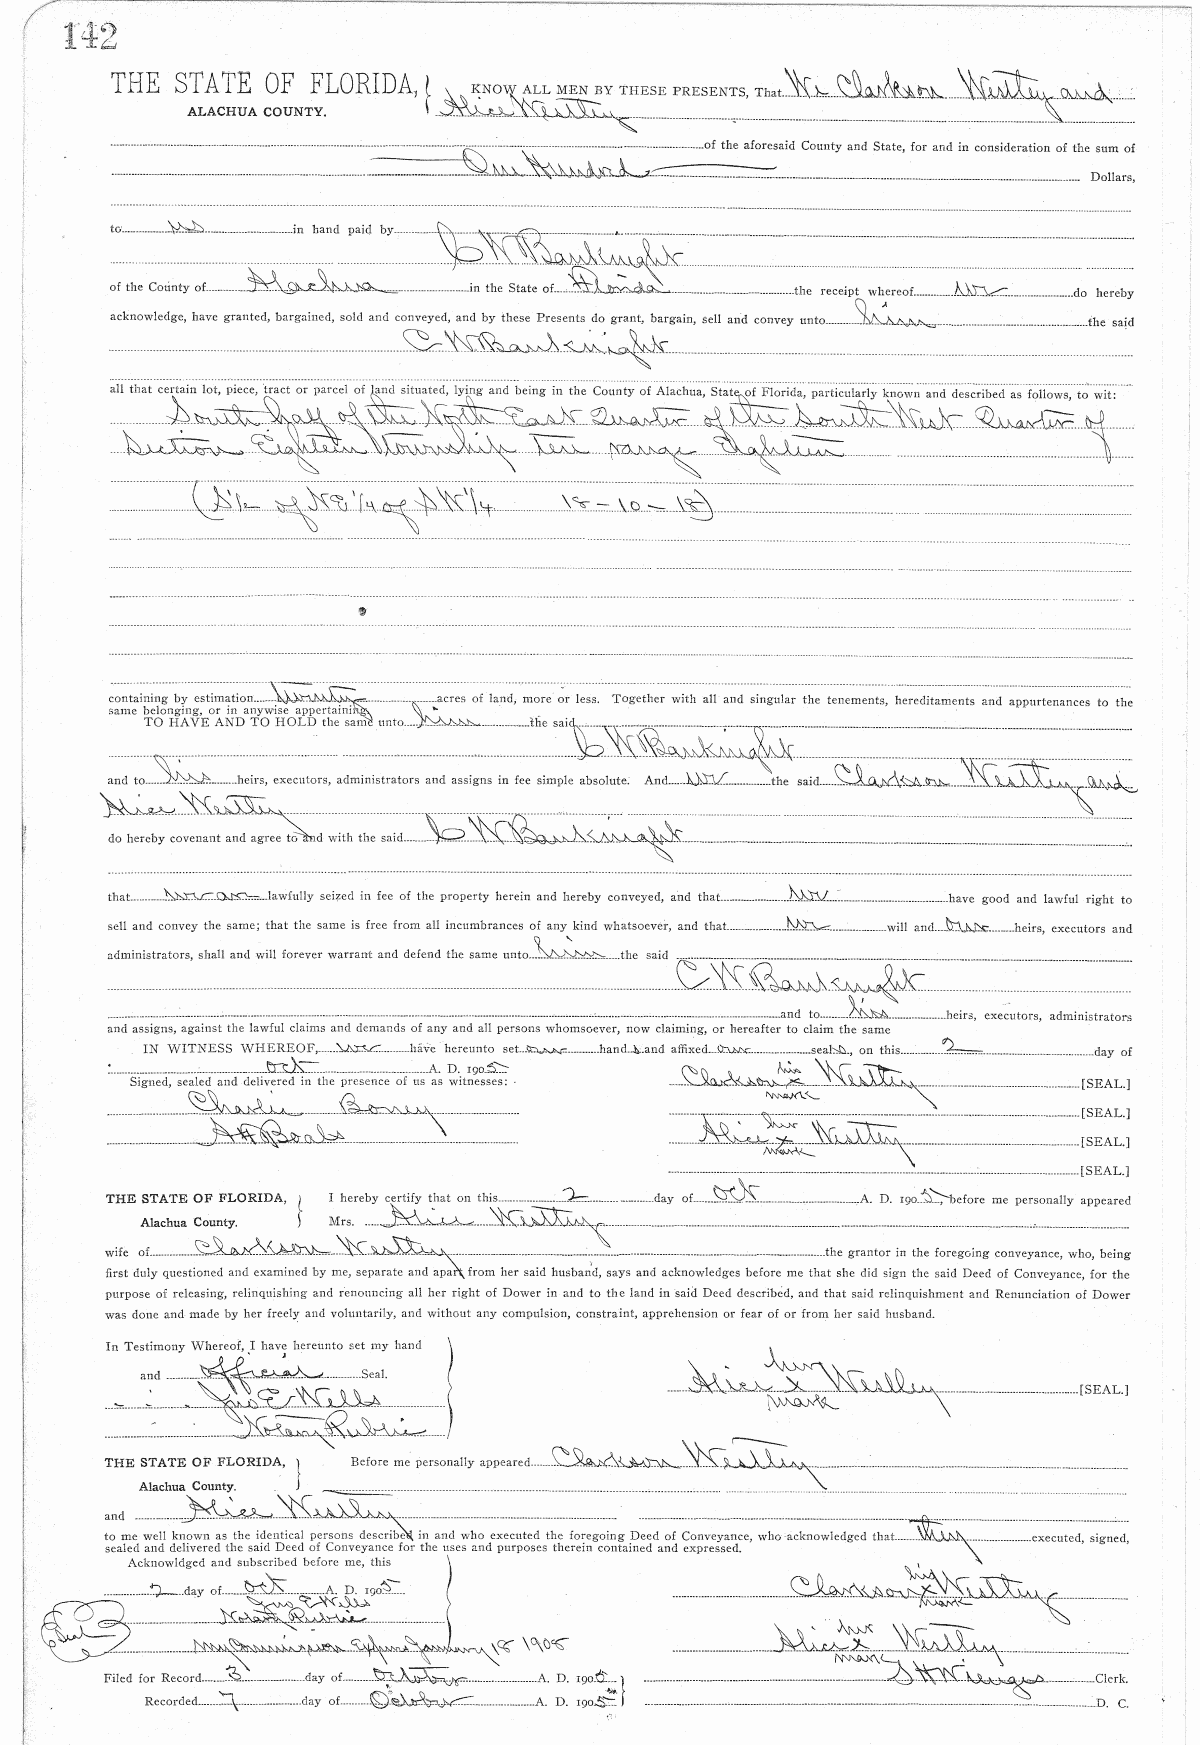 142
THE STATE OF FLORIDA, KNOW ALL MEN BY THESE PRESENTS, That We Clarkson Westley and
ALACHUA COUNTY. Alice Westley
of the aforesaid County and State, for and in consideration of the sum of
One Hundred Dollars,
to us in hand paid by
C W Bauknight
of the County of Alachua in the State of Florida the receipt whereof we do hereby
acknowledge, have granted, bargained, sold and conveyed, and by these Presents do grant, bargain, sell and convey unto him the said
C W Bauknight
all that certain lot, piece, tract or parcel of land situated, lying and being in the County of Alachua, State of Florida, particularly known and described as follows, to wit:
South half of the North East Quarter of the South West Quarter of
Section Eighteen township ten range Eighteen
(S½ of NE¼ of SW¼ 18-10-18)
containing by estimation twenty acres of land, more or less. Together with all and singular the tenements, hereditaments and appurtenances to the
same belonging, or in anywise appertaining
TO HAVE AND TO HOLD the same unto him the said
C W Bauknight
and to his heirs, executors, administrators and assigns in fee simple absolute. And we the said Clarkson Westley and
Alice Westley
do hereby covenant and agree to and with the said C W Bauknight
that we are lawfully seized in fee of the property herein and hereby conveyed, and that we have good and lawful right to
sell and convey the same; that the same is free from all incumbrances of any kind whatsoever, and that we will and our heirs, executors and
administrators, shall and will forever warrant and defend the same unto him the said
C W Bauknight
and to his heirs, executors, administrators
and assigns, against the lawful claims and demands of any and all persons whomsoever, now claiming, or hereafter to claim the same
IN WITNESS WHEREOF, we have hereunto set our hand s and affixed our seal s, on this 2 day of
oct A. D. 1905
Signed, sealed and delivered in the presence of us as witnesses:
Clarkson his x mark Westley [SEAL.]
Charlie Boney [SEAL.]
A H Boals Alice her x mark Westley [SEAL.]
[SEAL.]
THE STATE OF FLORIDA, I hereby certify that on this 2 day of oct A. D. 1905, before me personally appeared
Alachua County. Mrs. Alice Westley
wife of Clarkson Westley the grantor in the foregoing conveyance, who, being
first duly questioned and examined by me, separate and apart from her said husband, says and acknowledges before me that she did sign the said Deed of Conveyance, for the
purpose of releasing, relinquishing and renouncing all her right of Dower in and to the land in said Deed described, and that said relinquishment and Renunciation of Dower
was done and made by her freely and voluntarily, and without any compulsion, constraint, apprehension or fear of or from her said husband.
In Testimony Whereof, I have hereunto set my hand
and official Seal.
Alice her x mark Westley [SEAL.]
Jno E Wells
Notary Public
THE STATE OF FLORIDA, Before me personally appeared Clarkson Westley
Alachua County.
and Alice Westley
to me well known as the identical persons described in and who executed the foregoing Deed of Conveyance, who acknowledged that they executed, signed,
sealed and delivered the said Deed of Conveyance for the uses and purposes therein contained and expressed.
Acknowldged and subscribed before me, this
2 day of oct A. D. 1905
Clarkson his x mark Westley
Jno E Wells
Notary Public
Seal
My Commission Expires January 18 1908
Alice her x mark Westley
Filed for Record 3 day of October A. D. 1905 S H Wienges Clerk.
Recorded 7 day of October A. D. 1905 D. C.